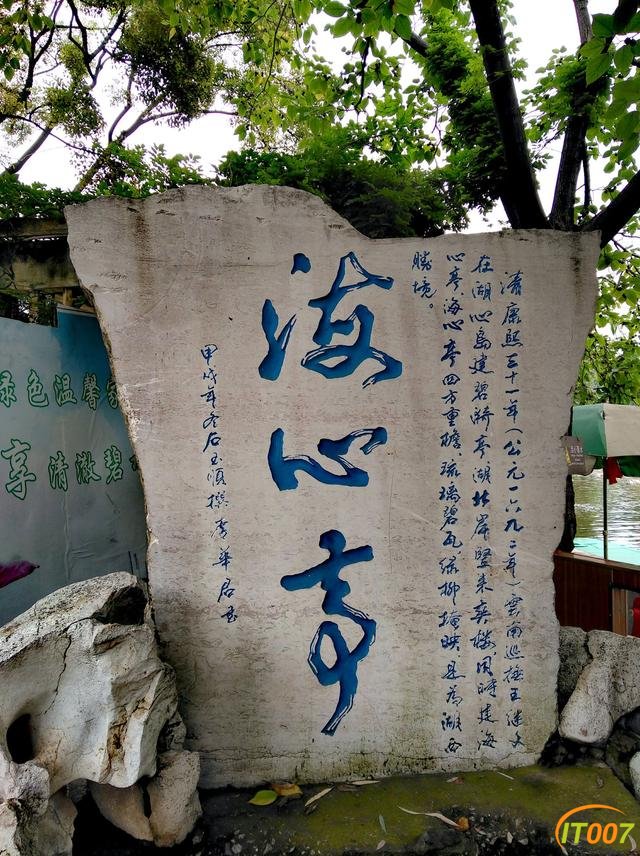 清康熙三十一年（公元一六九二年）雲南巡撫王继文
在湖心島建碧漪亭湖北岸豎来爽楼，同時建海
心亭海心亭四方重檐，琉璃碧瓦，绿柳掩映，是為湖西
勝境。
海心亭
甲戌年冬石玉順撰李華居書
绿色温馨家
享清澈碧
IT007